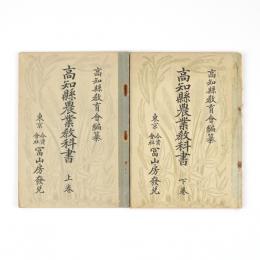 高知縣教育會編纂
高知縣農業教科書 上巻
東京 合資會社 冨山房發兌
高知縣教育會編纂
高知縣農業教科書 下巻
東京 合資會社 冨山房發兌